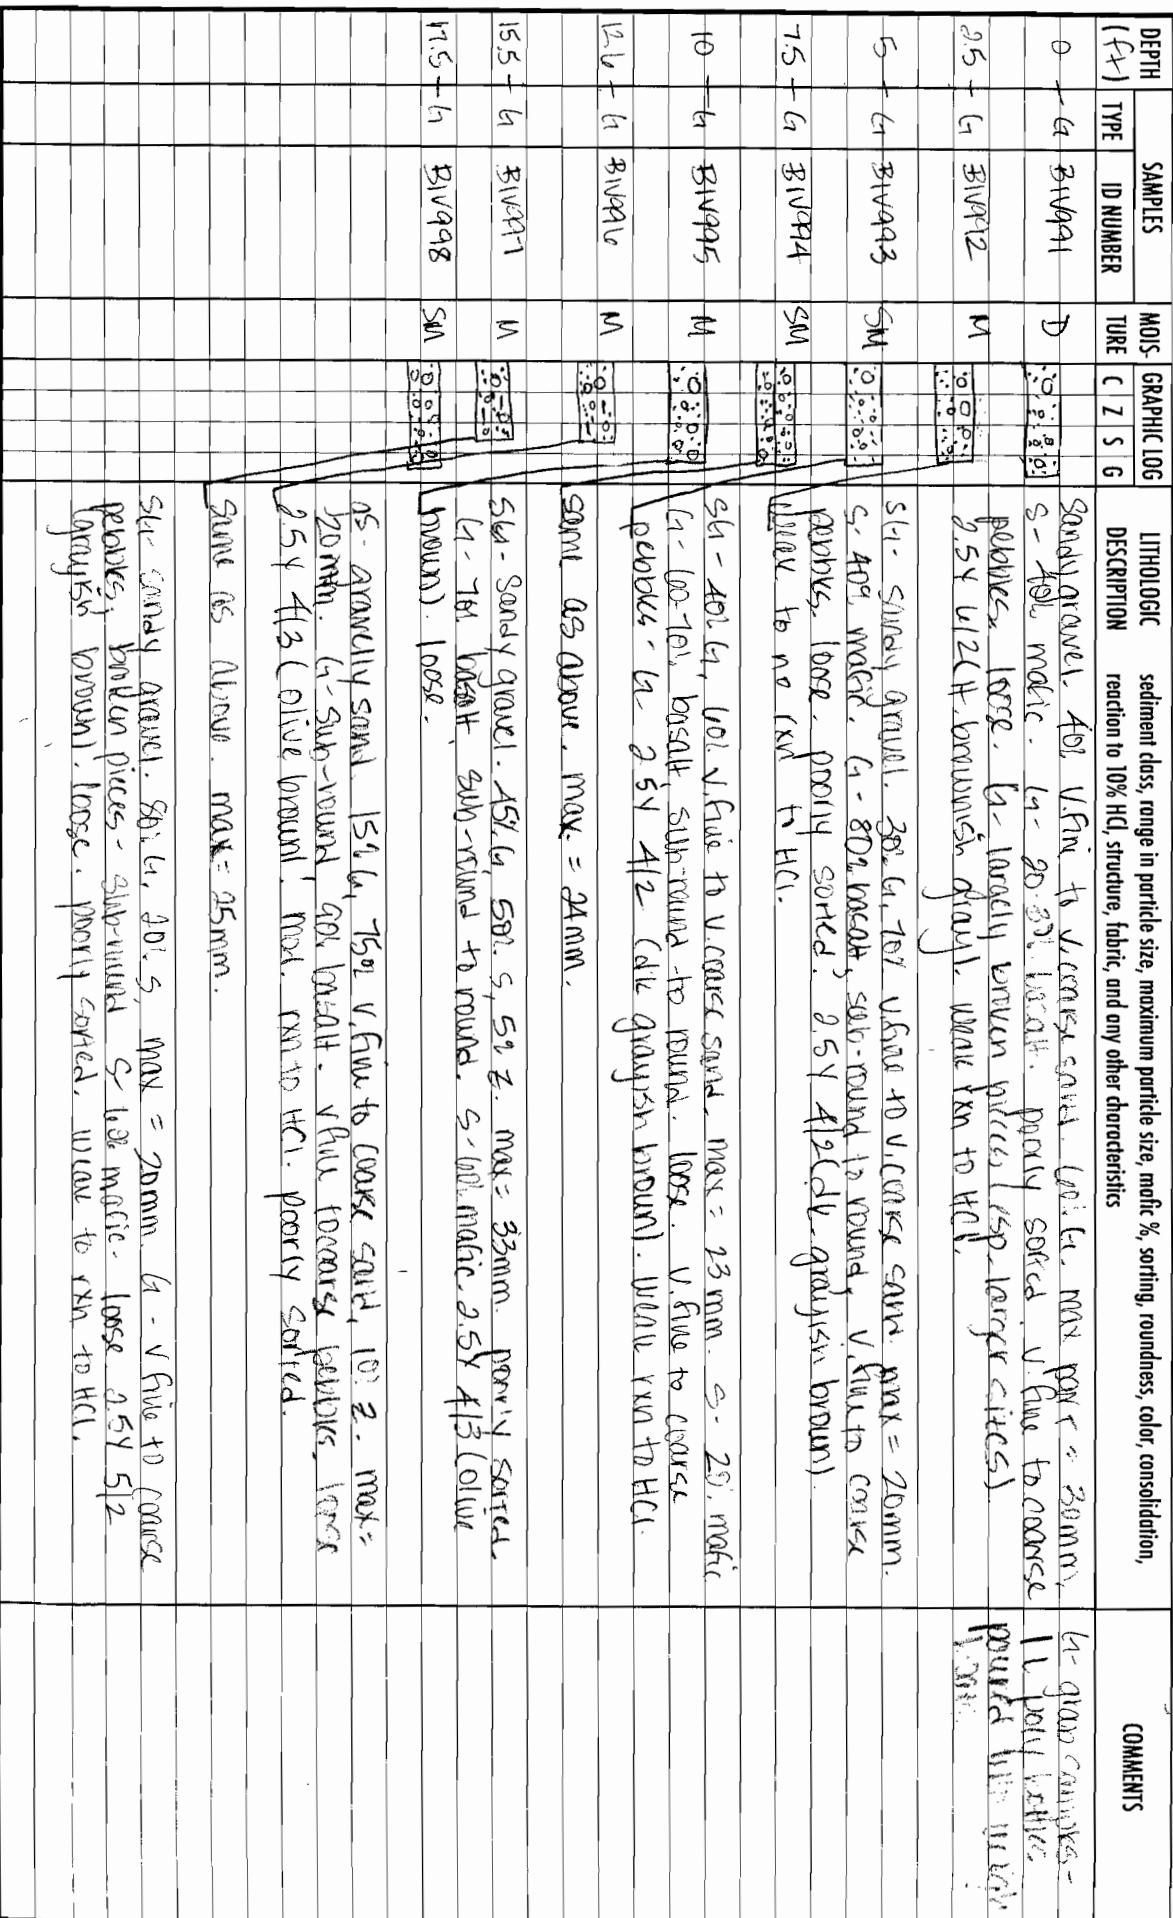 DEPTH (ft)
SAMPLES
TYPE ID NUMBER
MOIS-TURE
GRAPHIC LOG
C Z S G
LITHOLOGIC DESCRIPTION
sediment class, range in particle size, maximum particle size, mafic %, sorting, roundness, color, consolidation,
reaction to 10% HCl, structure, fabric, and any other characteristics
COMMENTS
0 G B1V991 D
2.5 G B1V992 M
5 G B1V993 SM
7.5 G B1V994 SM
10 G B1V995 M
12.6 G B1V996 M
15.5 G B1V997 M
17.5 G B1V998 SM
Sandy gravel. 40% v.fine to v.coarse sand. 60% G. max part = 30mm,
S- 40% mafic. G- 20-30% basalt. poorly sorted. v.fine to coarse
pebbles. loose. G- largely broken pieces (esp. larger sizes)
2.5Y 6/2 (lt. brownish gray). weak rxn to HCl.
SG- sandy gravel. 30% G, 70% v.fine to v.coarse sand. max = 20mm.
S- 40% mafic. G- 80% basalt, sub-round to round, v.fine to coarse
pebbles. loose. poorly sorted. 2.5Y 4/2 (dk grayish brown)
weak to no rxn to HCl.
SG- 40% G, 60% v.fine to v.coarse sand, max = 23mm. S- 20% mafic
G- 60-70% basalt, sub-round to round. loose. v.fine to coarse
pebbles- G- 2.5Y 4/2 (dk grayish brown). weak rxn to HCl.
same as above. max. = 24mm.
SG- Sandy gravel. 45% G, 50% S, 5% Z. max = 33mm. poorly sorted.
G- 70% basalt, sub-round to round. S- 60% mafic. 2.5Y 4/3 (olive
brown). loose.
gS- gravelly sand. 15% G, 75% v.fine to coarse sand, 10% Z. max=
20mm. G- sub-round 90% basalt. v.fine to coarse pebbles, loose
2.5Y 4/3 (olive brown). mod. rxn to HCl. poorly sorted.
Same as above. max = 25mm.
SG- sandy gravel. 80% G, 20% S, max = 20mm. G - v.fine to coarse
pebbles, broken pieces- sub-round S- 60% mafic. loose. 2.5Y 5/2
(grayish brown). loose. poorly sorted. weak to rxn to HCl.
G- grab samples-
1L poly bottles.